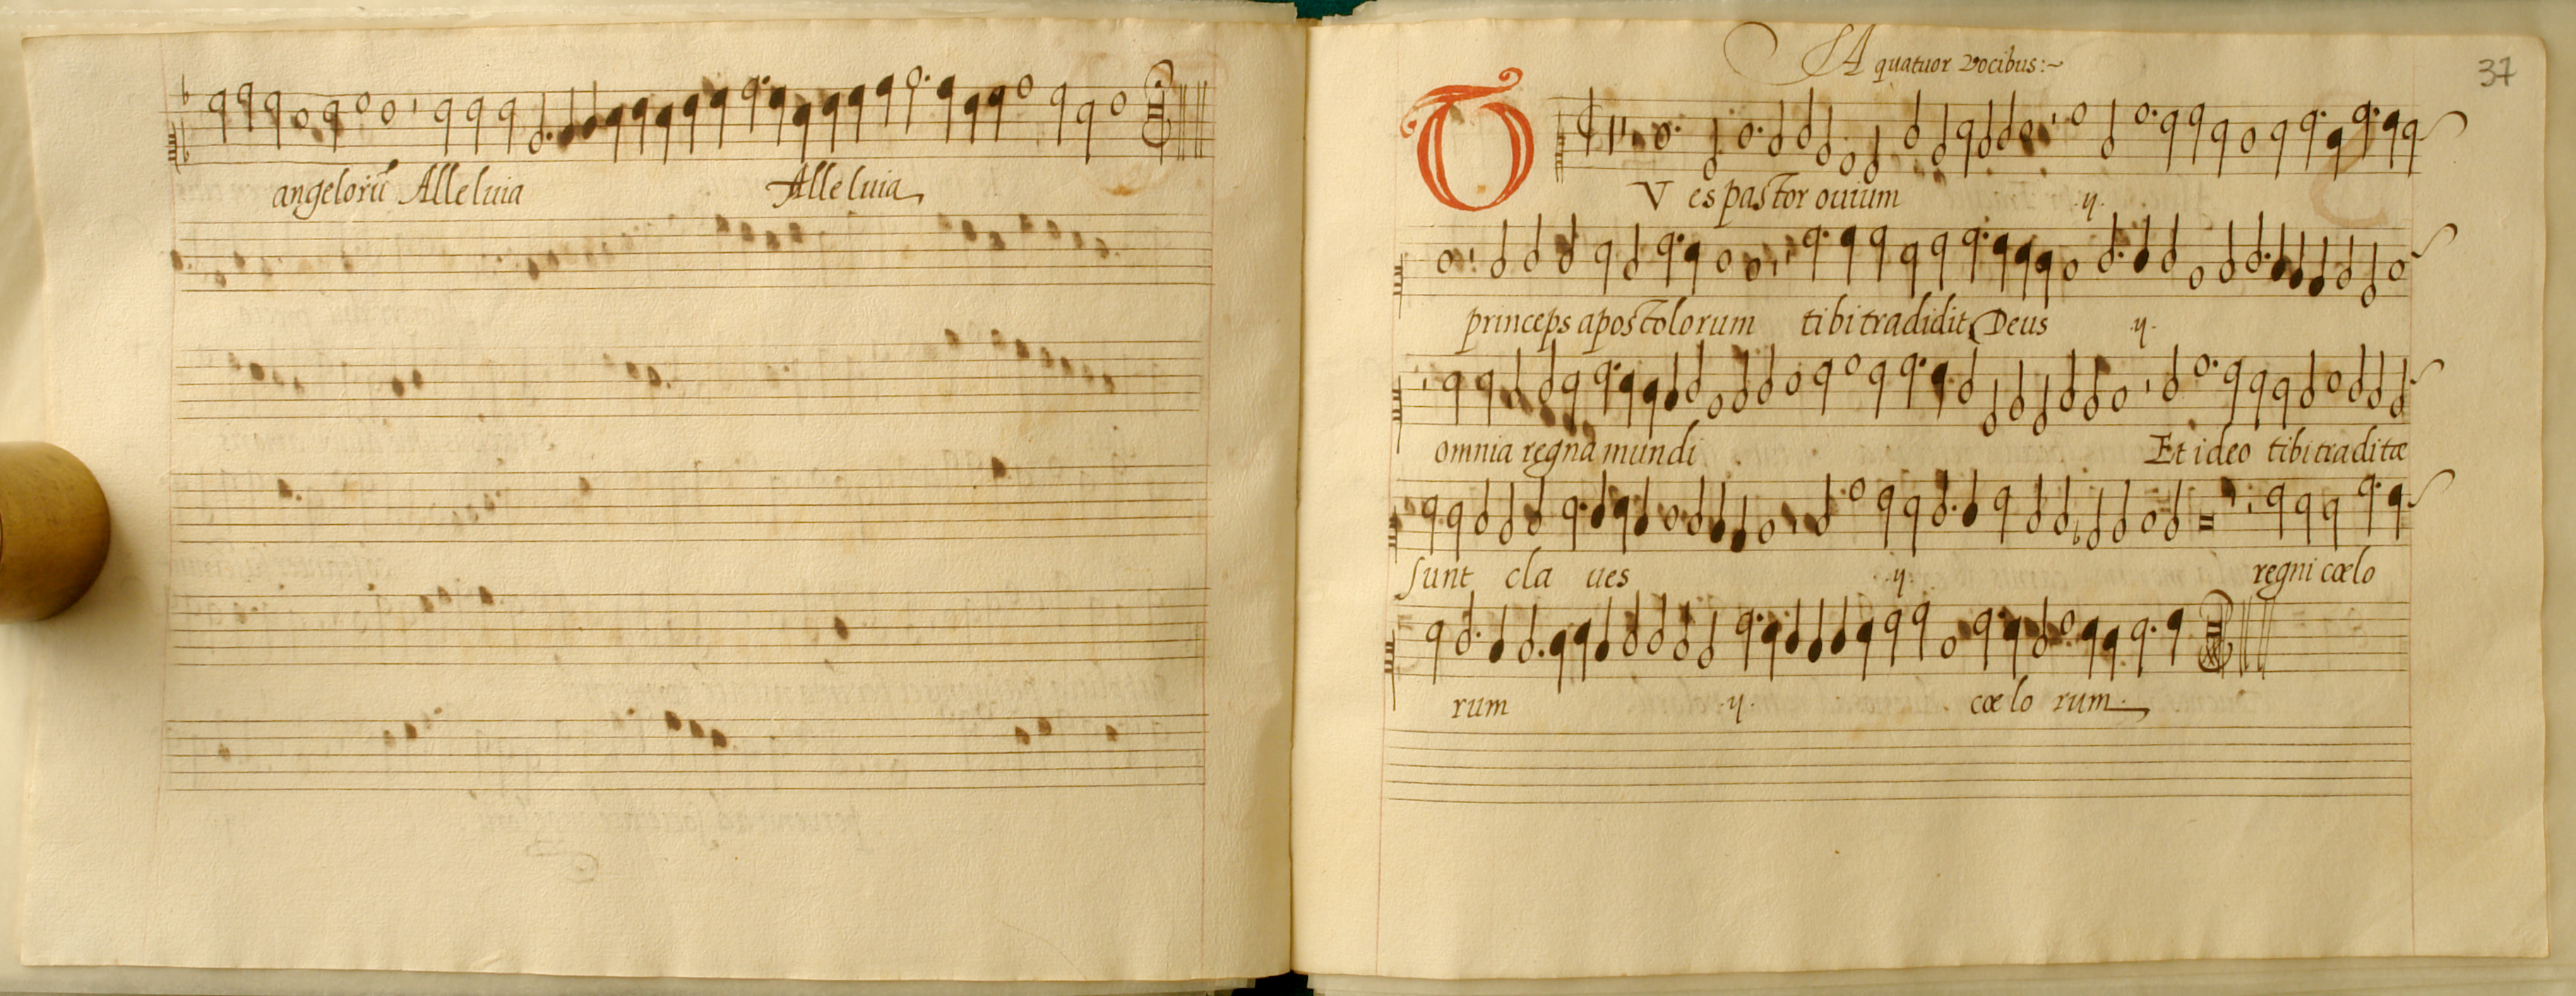 angelorū Alleluia Alleluia
A quatuor vocibus:~
37
TV es pastor ouium ij.
princeps apostolorum tibi tradidit Deus ij.
omnia regna mundi Et ideo tibi traditæ
sunt cla ues ij. regni cœlo
rum ij. cœlo rum.